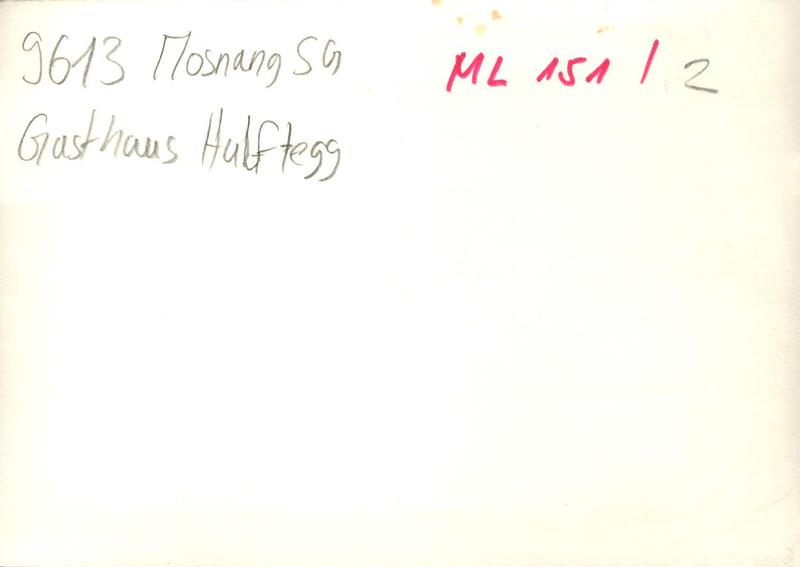 9613 Mosnang SG
Gasthaus Hulftegg
ML 151 / 2